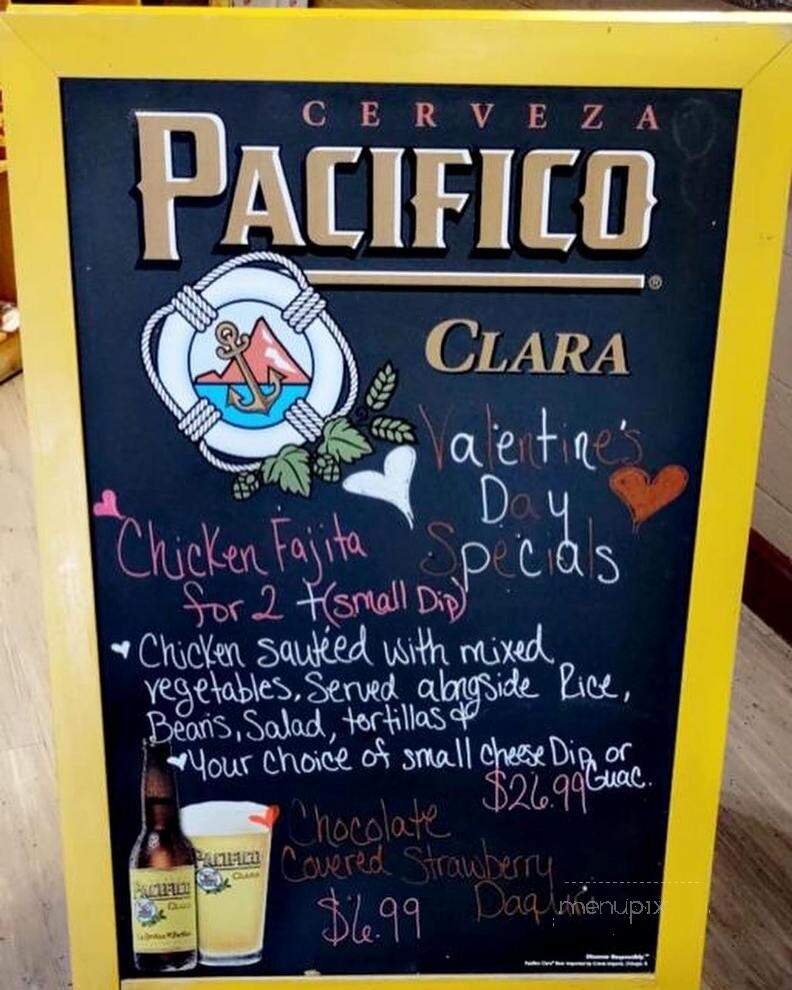 CERVEZA
PACIFICO®
CLARA
Valentine's
Day
Specials
Chicken Fajita
for 2 + (small Dip)
Chicken sautéed with mixed
vegetables. Served alongside Rice,
Beans, Salad, tortillas &
Your choice of small cheese Dip or
Guac.
$26.99
Chocolate
Covered Strawberry
$6.99
menupix
PACIFICO
CLARA
PACIFICO
CLARA
Discover Responsibly.™